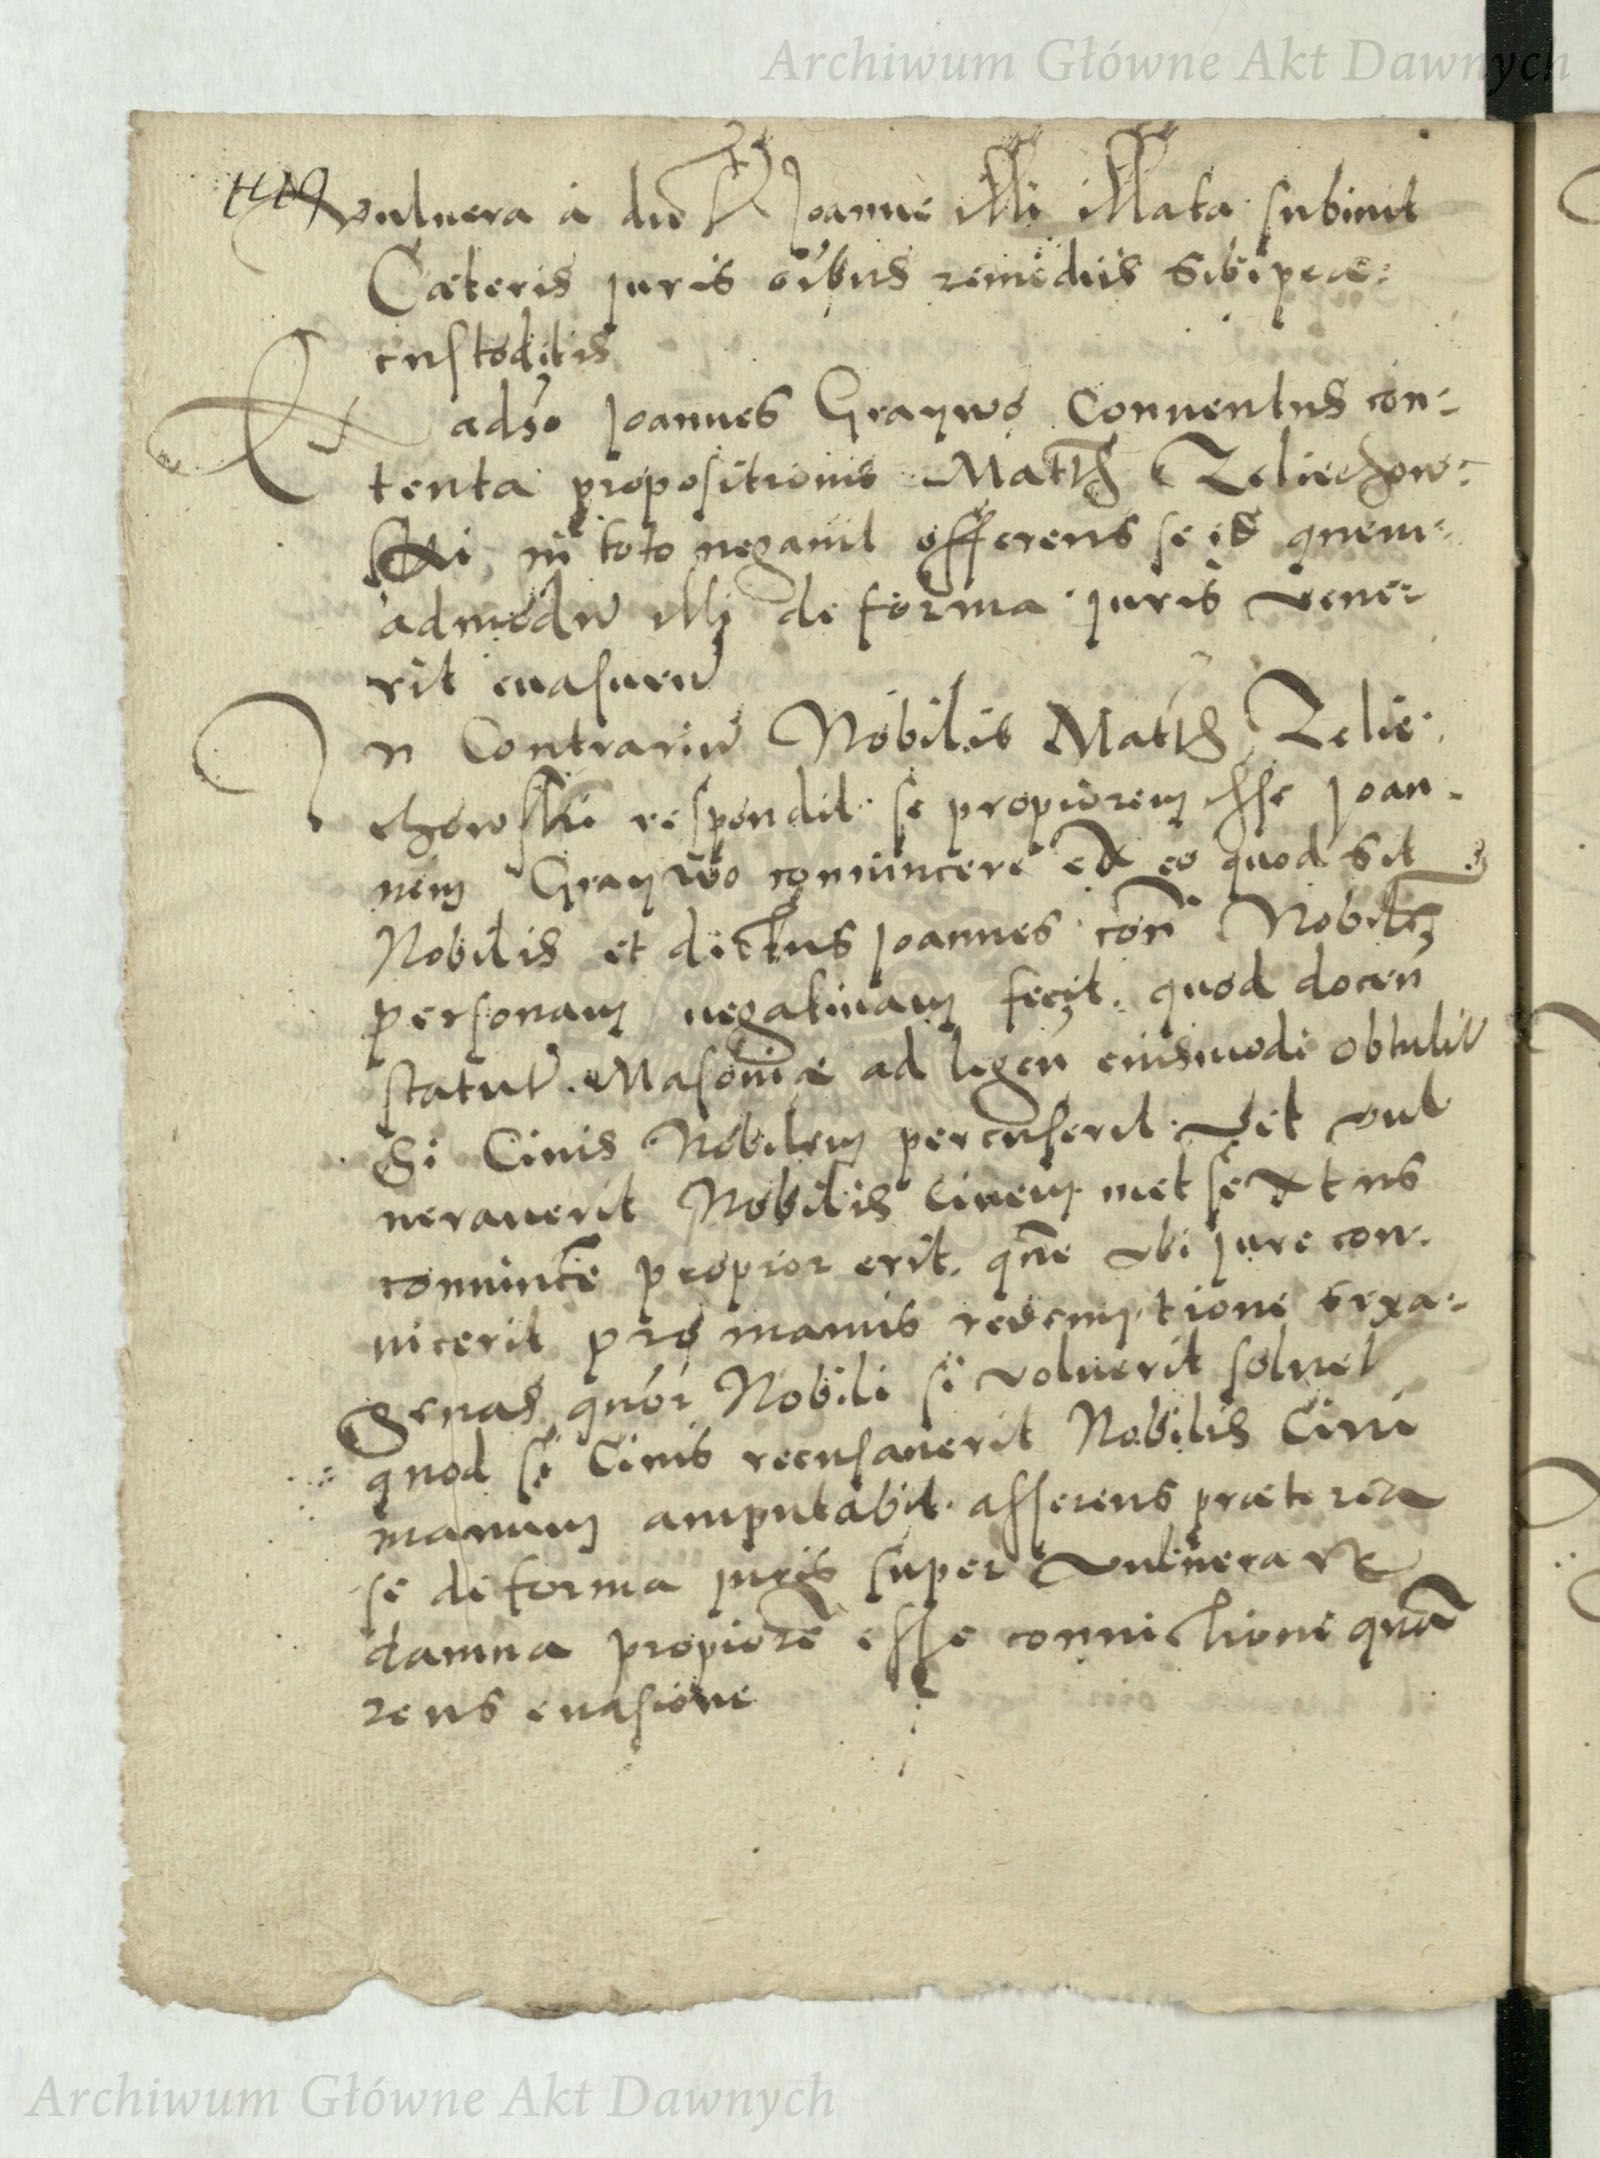 Archiwum Główne Akt Dawnych
vulnera a dicto Joanne illi illata subiuit
Cæteris juris oibus remediis sibi præ:
custoditis
adso Joannes Graywo Conuentus con:
tenta propositionis Matth Zeliechow:
ski in toto negauit offerens se id quem:
admodu illi de forma juris vene:
rit euasuru
In Contrariu Nobilis Matth Zelie:
chowski respondit se propiorem esse Joan:
nem Graywo conuincere ex eo quod sit
Nobilis et dictus Joannes con Nobilem
personam negatiuam fecit. quod docen
statut. Masouiæ ad legen eiusmodi obtulit
Si Ciuis Nobilem percuserit vel vul
nerauerit Nobilis Ciuem met sextus
conuince propior erit. que vbi jure con:
uicerit pro manus redemptione sexa:
genas quor Nobili si voluerit soluet
quod si Ciuis recusauerit Nobilis Ciui
manum amputabit. asserens præterea
se de forma juris super vulnera et
damna propiore esse conuictione qua
reus euasione
Archiwum Główne Akt Dawnych